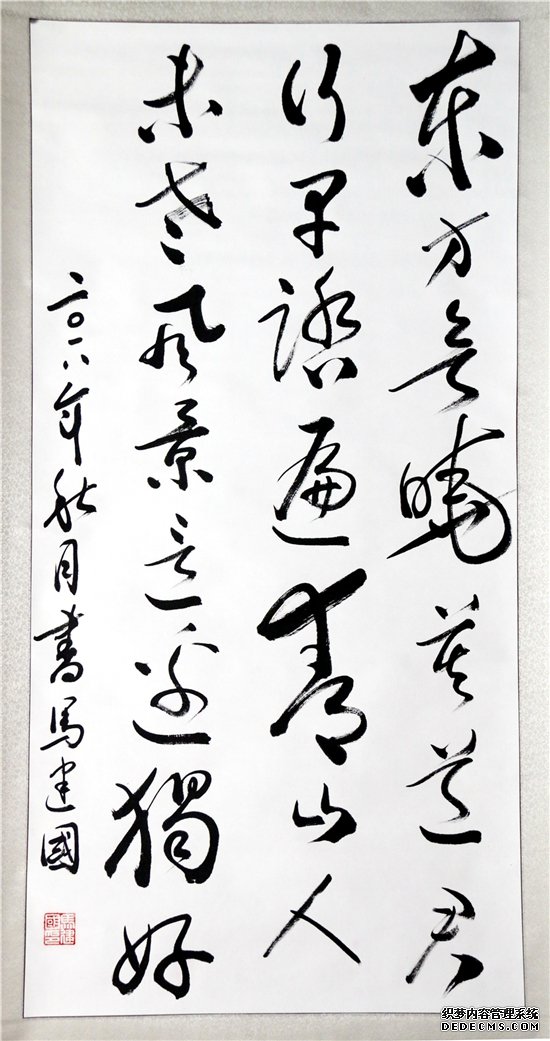 東方欲曉莫道君
行早踏遍青山人
未老風景這邊獨好
二〇一八年秋月書馬建國
馬建國印
织梦内容管理系统
DEDECMS.COM